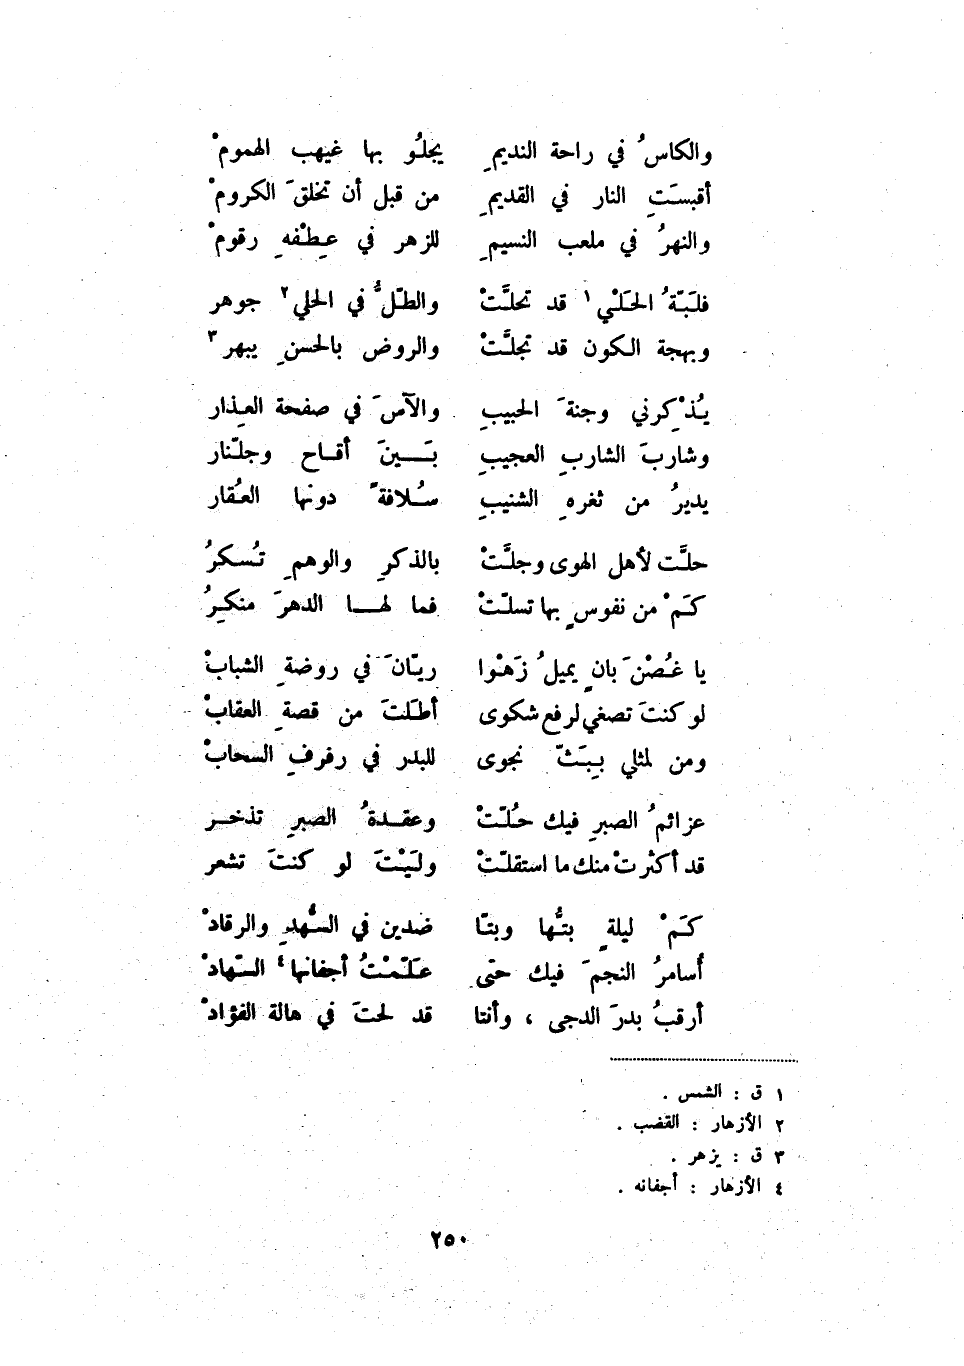 والكاسُ في راحة النديمِ يجلُو بها غيهب الهمومْ
أقبستَِ النار في القديمِ من قبل أن تخلقَ الكرومْ
والنهرُ في ملعب النسيمِ للزهر في عِطْفهِ رقومْ
فلَبّةُ الحَلْيِ١ قد تحلَّتْ والطّلُّ في الحلي٢ جوهر
وبهجة الكون قد تجلَّتْ والروض بالحسنِ يبهر٣
يُذْكِرني وجنةَ الحبيبِ والآسَ في صفحة العِذار
وشاربَ الشاربِ العجيبِ بَيـــنَ أقـاح وجلّنار
يديرُ من ثغرهِ الشنيبِ سُلافةً دونها العُقار
حلَّت لأهل الهوى وجلَّتْ بالذكرِ والوهمِ تُسكرُ
كَمْ من نفوسٍ بها تسلّتْ فما لهـــا الدهرَ منكِرُ
يا غُصْنَ بانٍ يميلُ زَهْوا ريّانَ في روضةِ الشبابْ
لو كنتَ تصغي لرفع شكوى أطلتَ من قصةِ العقابْ
ومن لمثلي بِبَثّ نجوى للبدر في رفرفِ السحابْ
عزائمُ الصبرِ فيك حُلّتْ وعقـدةُ الصبرِ تذخـر
قد أكثرتْ منك ما استقلّتْ ولَيْتَ لو كنتَ تشعر
كَمْ ليلةٍ بتُّها وبتّا ضدين في السُّهدِ والرقادْ
أسامرُ النجمَ فيك حتى علّمْتُ أجفانها٤ السّهادْ
أرقبُ بدرَ الدجى ، وأنتا قد لحتَ في هالة الفؤادْ
١ ق : الشمس .
٢ الأزهار : القضب .
٣ ق : يزهر .
٤ الأزهار : أجفانه .
٢٥٠